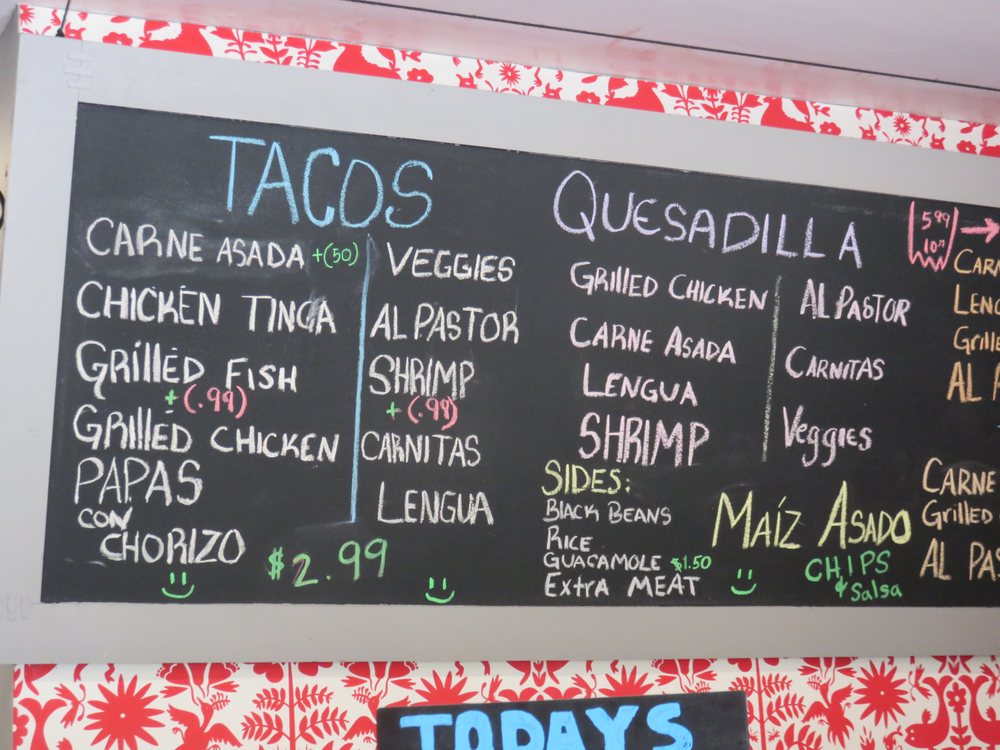 TACOS
CARNE ASADA +(50)
CHICKEN TINGA
GRILLED FISH
+ (.99)
GRILLED CHICKEN
PAPAS
CON
CHORIZO
$2.99
VEGGIES
AL PASTOR
SHRIMP
+ (.99)
CARNITAS
LENGUA
QUESADILLA
GRILLED CHICKEN
CARNE ASADA
LENGUA
SHRIMP
AL PASTOR
CARNITAS
Veggies
SIDES:
BLACK BEANS
RICE
GUACAMOLE $1.50
Extra MEAT
MAÍZ ASADO
CHIPS
& Salsa
5.99
10"
CARN
LENG
Grille
AL P
CARNE
Grilled
AL PAS
TODAYS